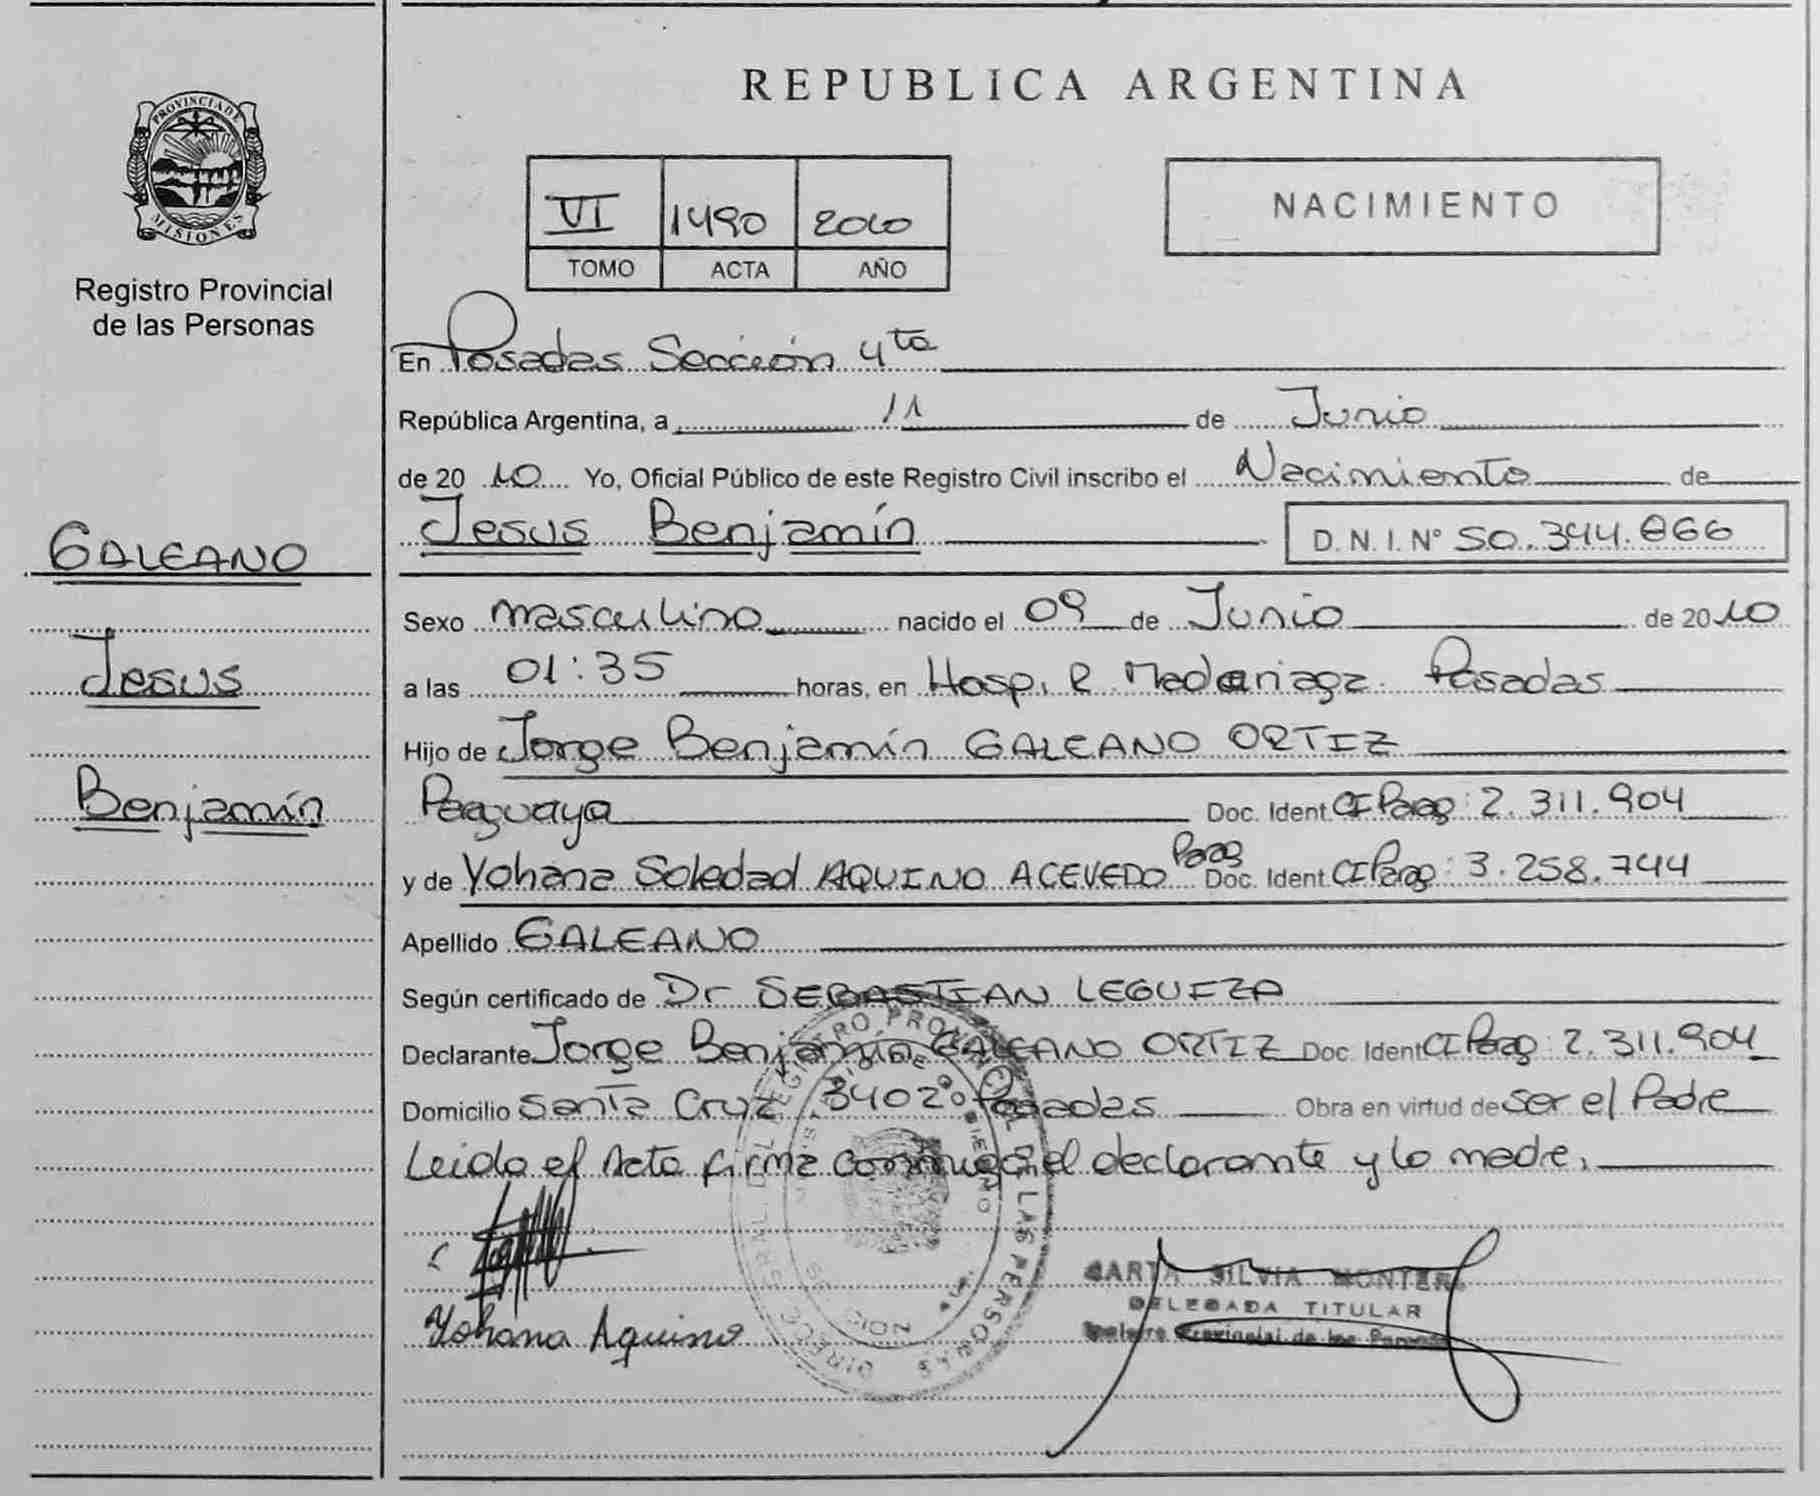 REPUBLICA ARGENTINA
PROVINCIA DE MISIONES
Registro Provincial
de las Personas
VI 1490 2010
TOMO ACTA AÑO
NACIMIENTO
En Posadas Sección 4ta
República Argentina, a 11 de Junio
de 2010 Yo, Oficial Público de este Registro Civil inscribo el Nacimiento de
Jesus Benjamín D.N.I. Nº 50.344.866
GALEANO
Jesus
Benjamín
Sexo masculino nacido el 09 de Junio de 2010
a las 01:35 horas, en Hosp. R Madariaga Posadas
Hijo de Jorge Benjamín GALEANO ORTIZ
Paraguaya Doc. Ident CI Parag: 2.311.904
y de Yohana Soledad AQUINO ACEVEDO Parag Doc. Ident CI Parag: 3.258.744
Apellido GALEANO
Según certificado de Dr SEBASTIAN
Declarante Jorge Benjamín GALEANO ORTIZ Doc. Ident CI Parag: 2.311.904
Domicilio Santa Cruz 3402 Posadas Obra en virtud de ser el Padre
Leida el Acta firma conmigo el declarante y la madre.
Yohana Aquino
SILVIA
DELEGADA TITULAR
Provincial de las Personas